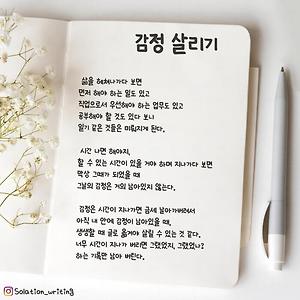 감정 살리기
삶을 헤쳐나가다 보면
먼저 해야 하는 일도 있고
직업으로서 우선해야 하는 업무도 있고
공부해야 할 것도 있다 보니
일기 같은 것들은 미뤄지게 된다.
시간 나면 해야지,
할 수 있는 시간이 있을 거야 하며 지나가다 보면
막상 그때가 되었을 때
그날의 감정은 거의 남아있지 않는다.
감정은 시간이 지나가면 금세 날아가버려서
아직 내 안에 감정이 남아있을 때,
생생할 때 글로 옮겨야 살릴 수 있는 것 같다.
너무 시간이 지나가 버리면 그랬었지, 그랬었나?
하는 기록만 남아 버린다.
@Solation_writing